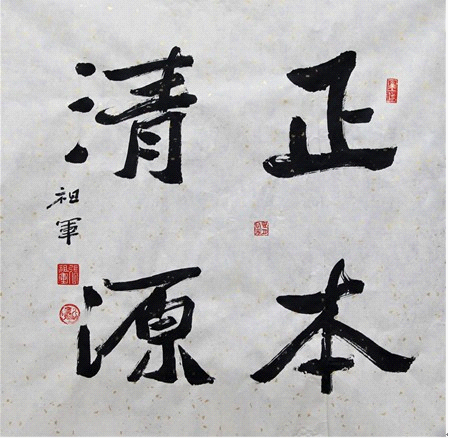 正本
清源
祖軍